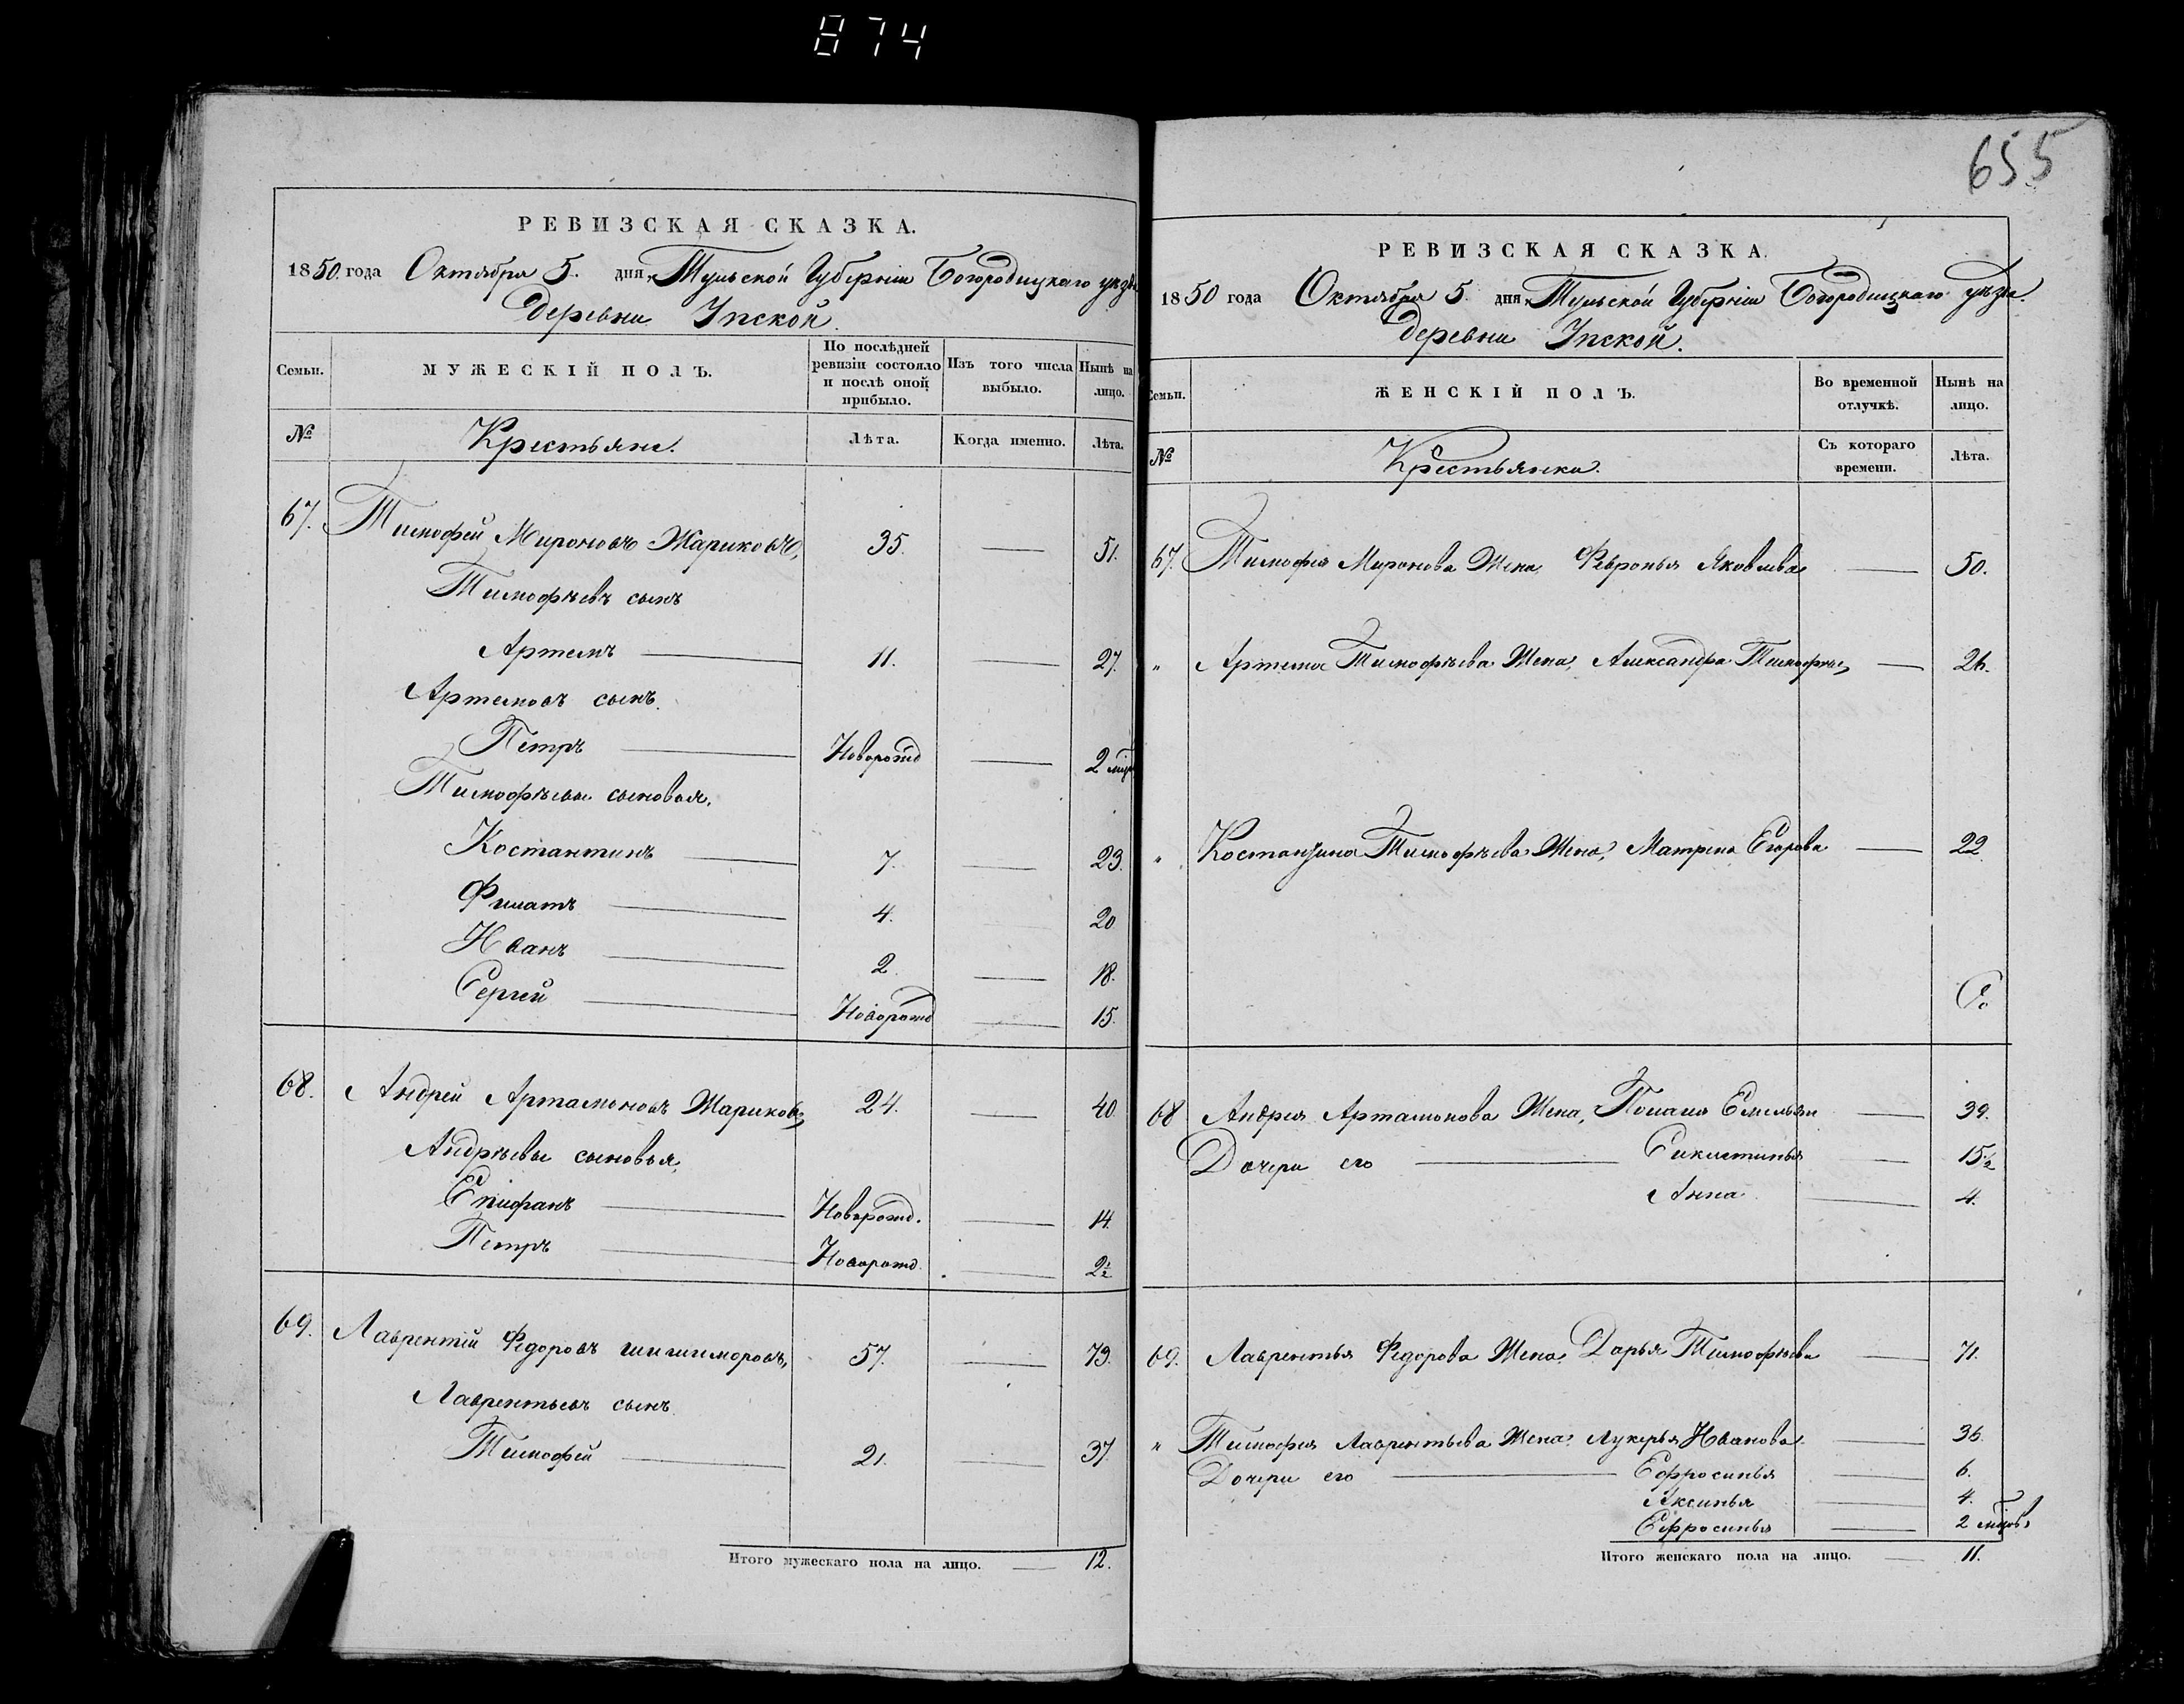 874
655
РЕВИЗСКАЯ СКАЗКА.
1850. года Октября 5. дня, Тульской Губерніи Богородицкаго уезда
Деревни Упской.
Семьи. МУЖЕСКІЙ ПОЛЪ. По послѣдней ревизіи состояло и послѣ оной прибыло. Изъ того числа выбыло. Нынѣ на лицо.
№ Крестьяне. Лѣта. Когда именно. Лѣта.
67. Тимофей Мироновъ Жариковъ, 35. — 51.
Тимофѣевъ сынъ
Артемъ — 11. — 27.
Артемовъ сынъ.
Петръ — Новорожд — 2 мѣ
Тимофѣевы сыновья,
Костантинъ — 7. — 23.
Филатъ — 4. — 20
Иванъ — 2 — 18.
Сергей — Новорожд — 15.
68. Андрей Артамоновъ Жариковъ, 24. — 40
Андрѣевы сыновья,
Епифанъ — Новорожд. — 14.
Петръ — Новорожд. — 2½
69. Лаврентій Федоровъ Шишиморовъ, 57. — 73.
Лаврентьевъ сынъ
Тимофей — 21. — 37.
Итого мужескаго пола на лицо. — 12.
РЕВИЗСКАЯ СКАЗКА.
1850 года Октября 5. дня, Тульской Губерніи Богородицкаго уезда.
Деревни Упской.
Семьи. ЖЕНСКІЙ ПОЛЪ. Во временной отлучкѣ. Нынѣ на лицо.
№ Крестьянки. Съ котораго времени. Лѣта.
67. Тимофея Миронова Жена, Февронья Яковлева — 50.
" Артема Тимофѣева Жена, Александра Тимофѣе, — 26.
" Костантина Тимофѣева Жена, Матрена Егорова — 22
68 Андрея Артамонова Жена, Емельян — 39.
Дочери его — — 15½
Анна — 4.
69. Лаврентья Федорова Жена, Дарья Тимофѣева — 71.
" Тимофея Лаврентьева Жена, Лукерья Иванова — 36.
Дочери его — Ефросинья — 6.
Аксинья — 4.
Ефросинья — 2 мѣсяц.
Итого женскаго пола на лицо. — 11.